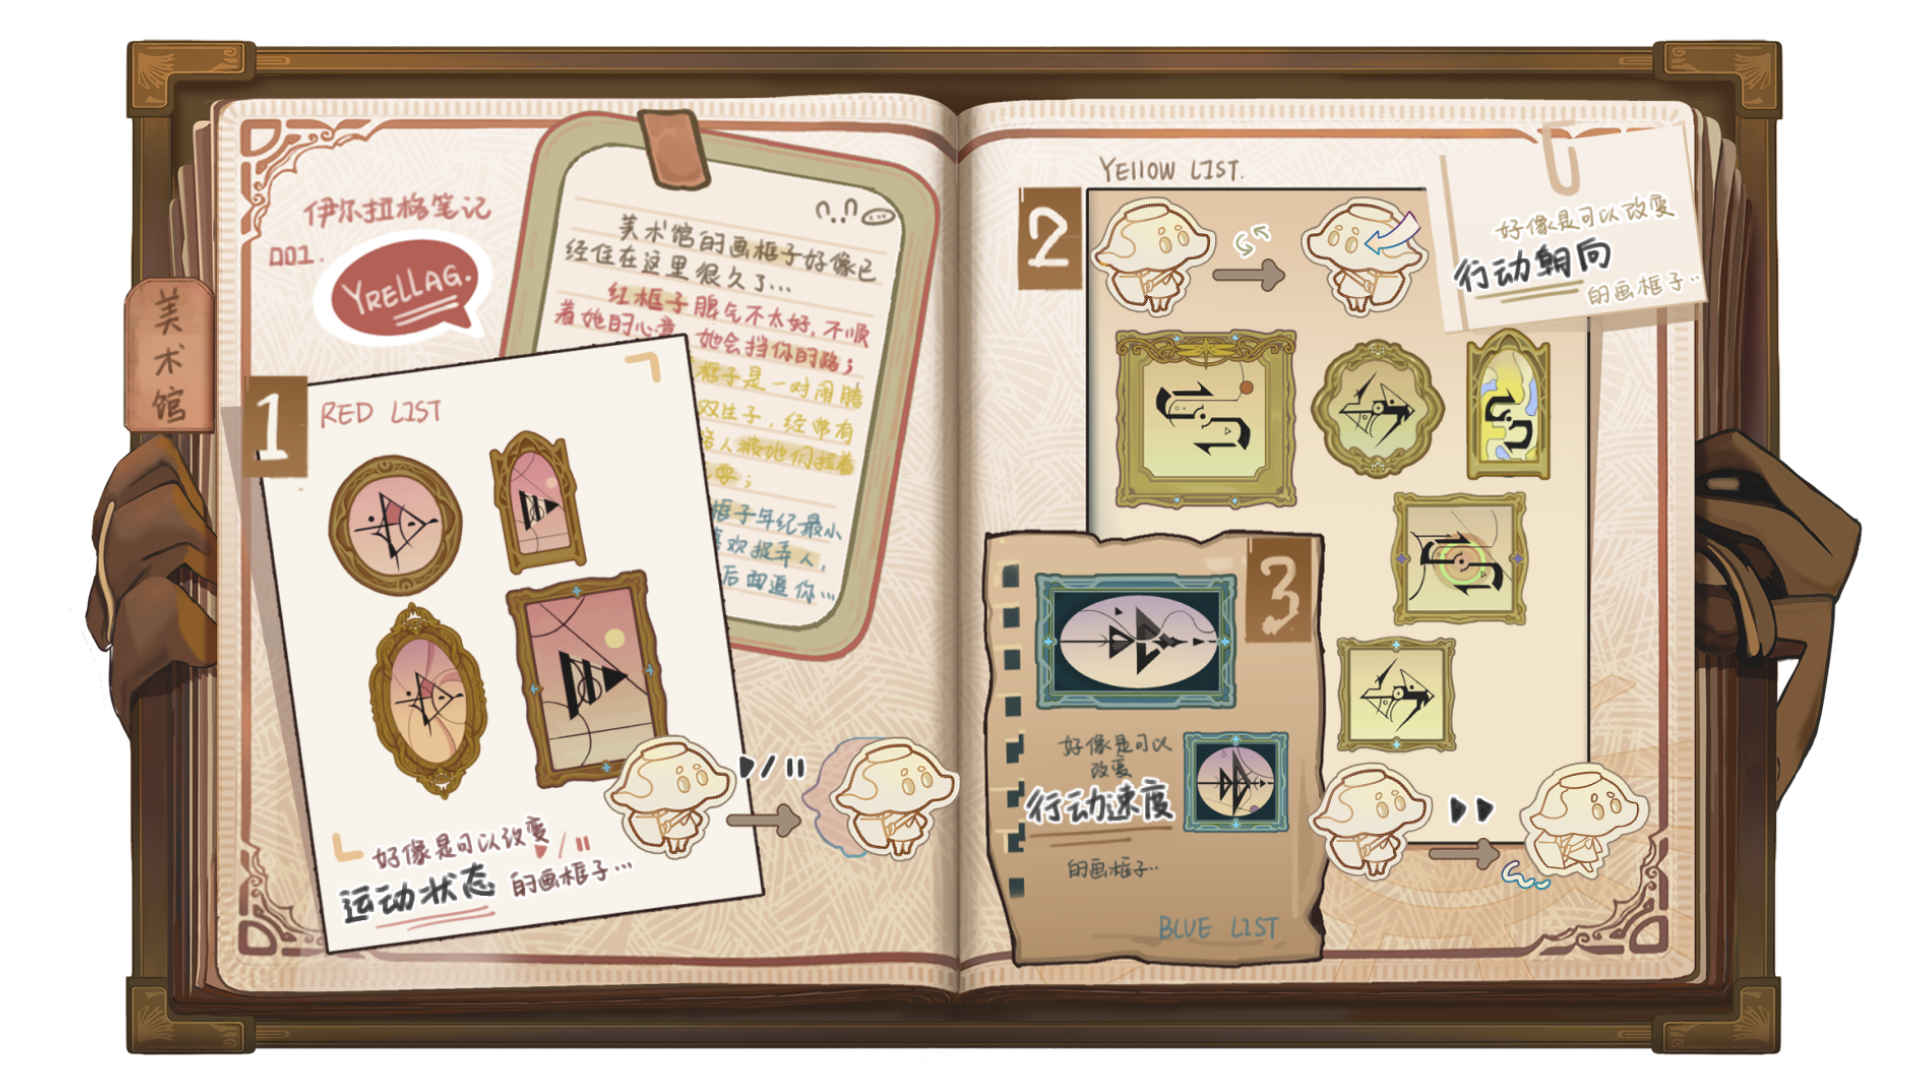 美术馆
伊尔拉格笔记
001.
YRELLAG.
美术馆的画框子好像已
经住在这里很久了...
红框子脾气不太好,不顺
着她的心意,她会挡你的路;
框子是一对闹腾
双生子,经常有
路人被她们扭着
框子年纪最小
喜欢捉弄人,
后面逗你...
1
RED LIST
好像是可以改变
运动状态 的画框子...
2
YELLOW LIST.
好像是可以改变
行动朝向
的画框子...
3
好像是可以
改变
行动速度
的画框子...
BLUE LIST